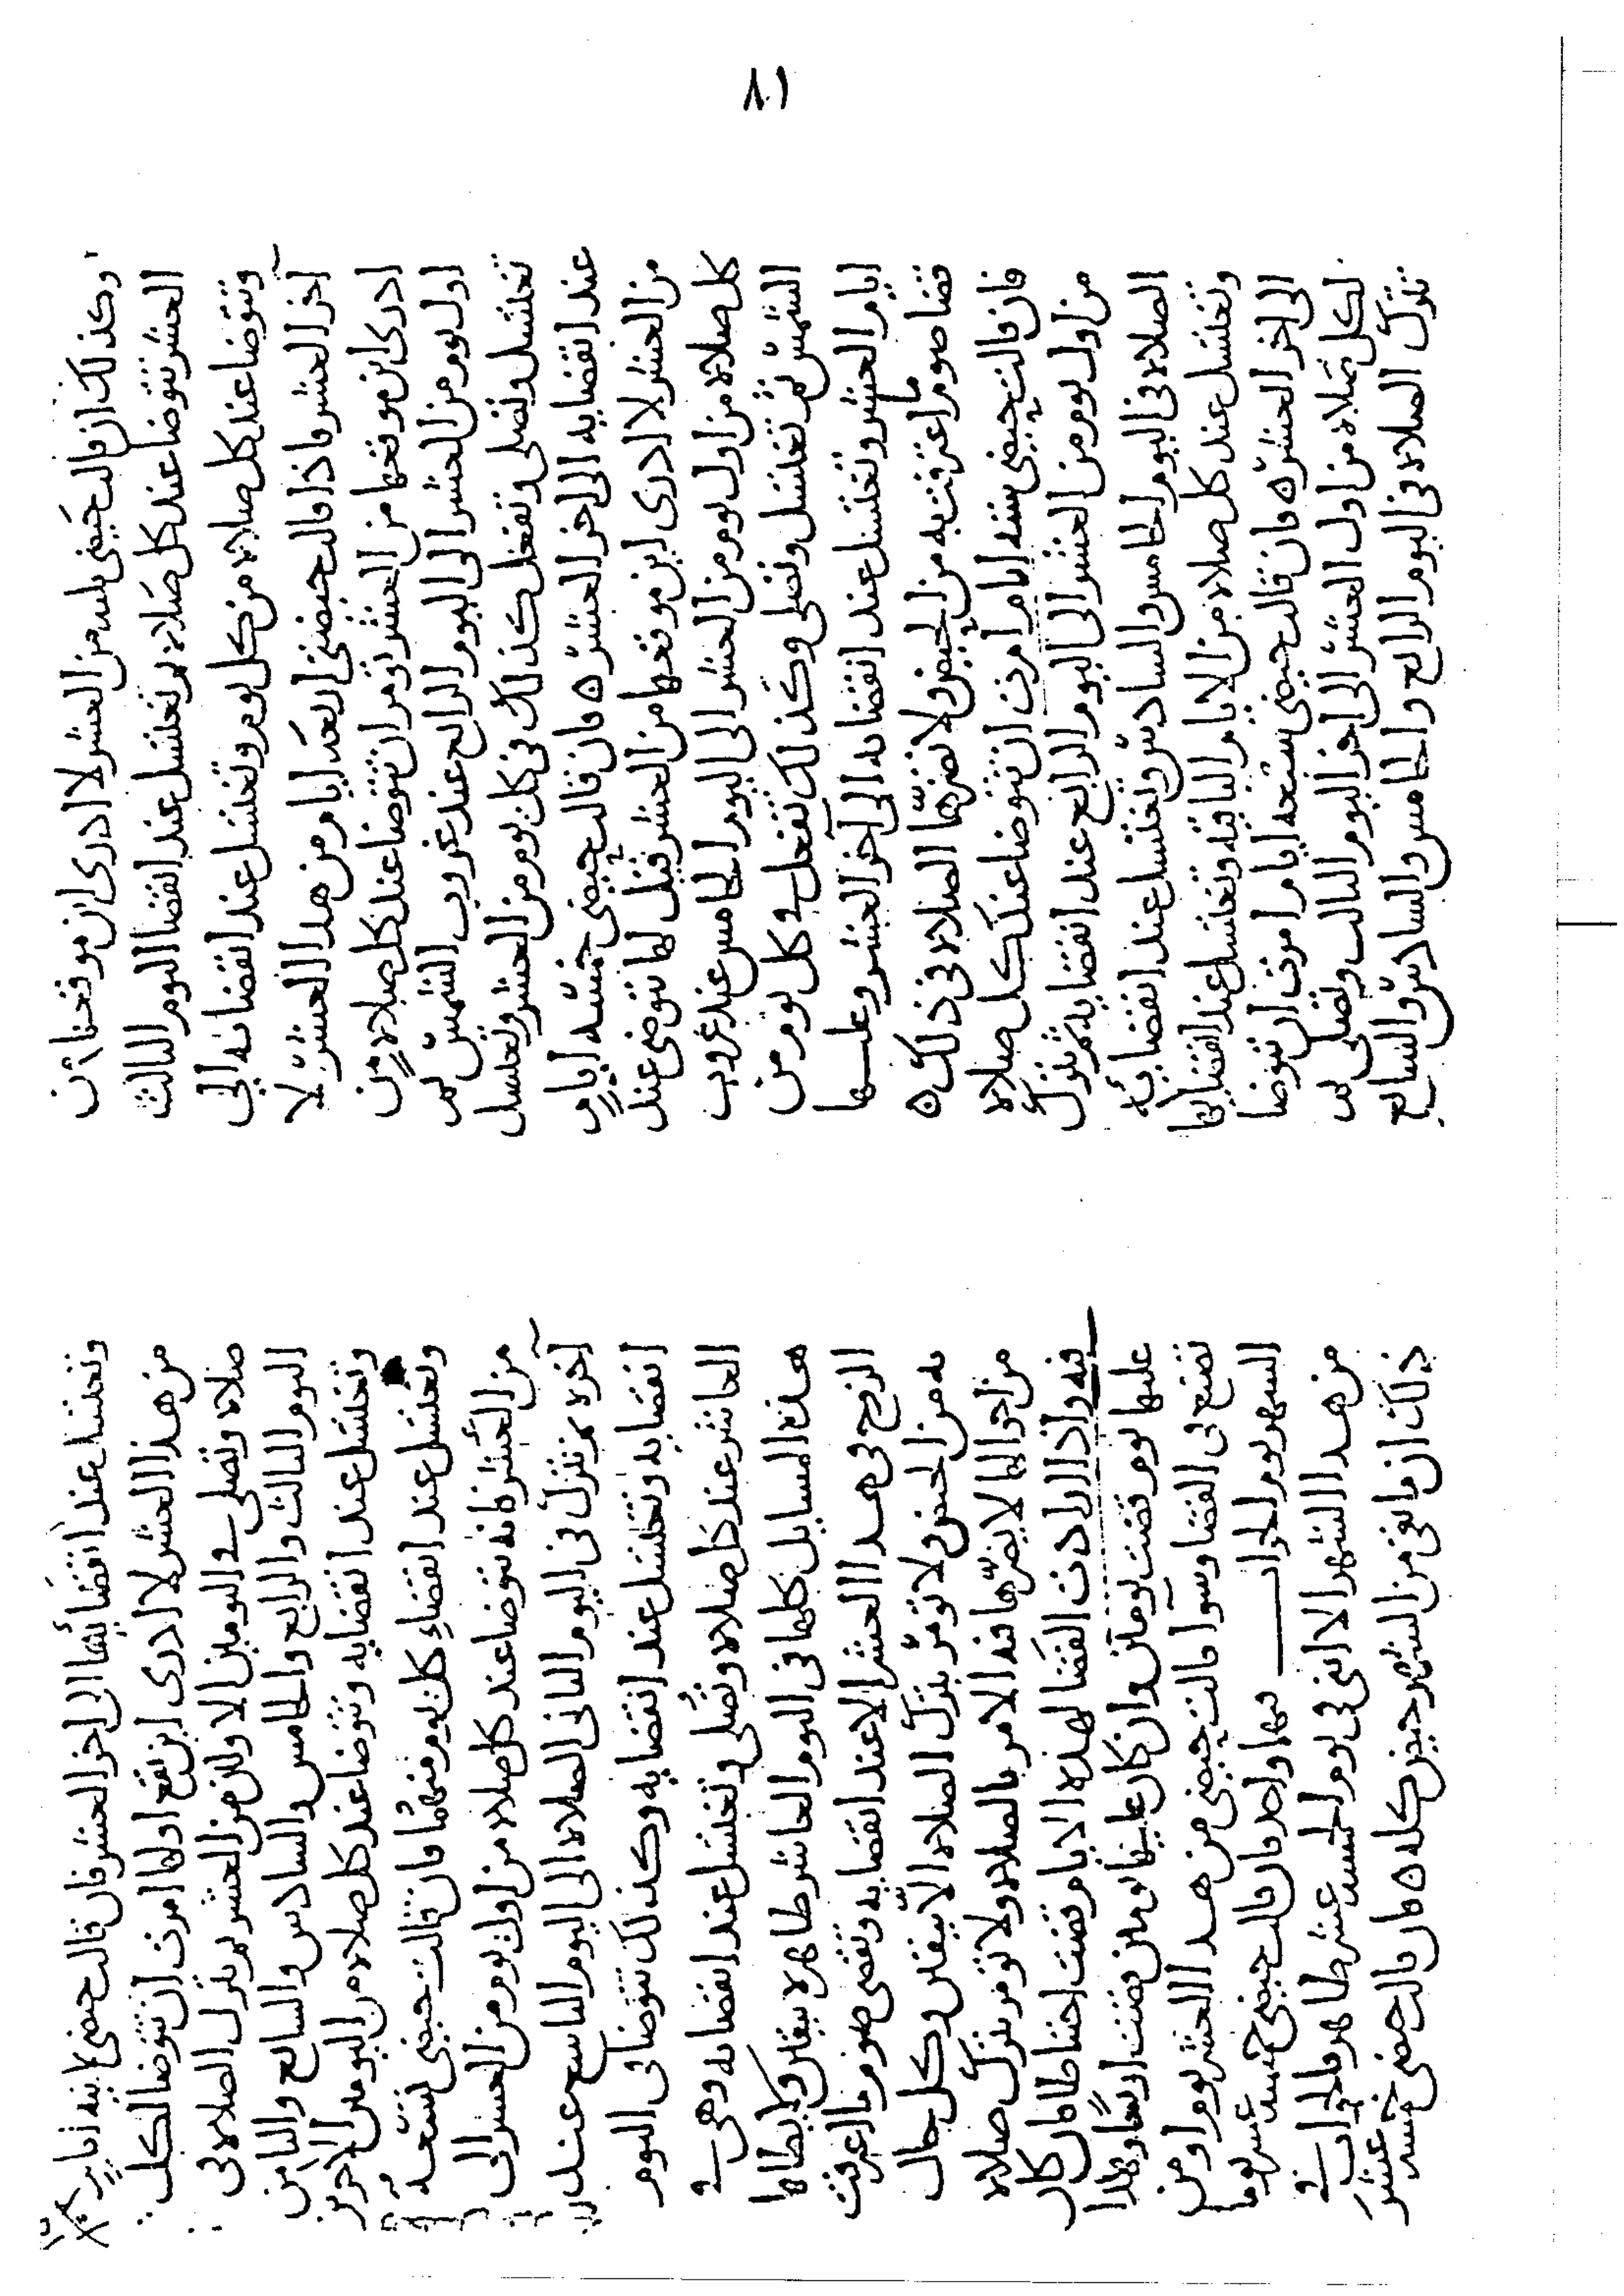 ٨١
وكذلك ان قالت حيضى ثلثه من العشر لا ادرى اين موقعها من
العشر تتوضا عند كل صلاة وتغتسل عند انقضا اليوم الثالث
وتتوضا عند كل صلاة من كل يوم وتغتسل عند انقضائه الى
آخر العشر فاذا قالت حيضتى اربعه ايام من هذا العشر لا
ادرى اين موقعها من العشر اومر ان تتوضا عند كل صلاة من
اول يوم من العشر الى اليوم الرابع عند غروب الشمس ثم
تغتسل وتصلى وتفعل كذلك فى كل يوم من العشر وتغتسل
عند انقضايه الى اخر العشر ه فان قالت حيضى خمسه ايام
من العشر لا ادرى اين موقعها من العشر قيل لها تتوضى عند
كل صلاة من اول يوم من العشر الى اليوم الخامس عند غروب
الشمس ثم تغتسل وتصلى وكذلك تفعل فى كل يوم من
ايام العشر وتغتسل عند انقضايه الى آخر العشر وعليها
قضا صوم ما اعترفت به من الحيض ولا نضرها الصلاة فى ذلك ه
فان قالت حيضى سته ايام امرت ان تتوضا عند كل صلاة
من اول يوم من العشر الى اليوم الرابع عند انقضايه ثم تترك
الصلاة فى اليوم الخامس والسادس وتغتسل عند انقضائه
وتغتسل عند كل صلاة من الايام الباقيه وتغتسل عند انقضايها
الى اخر العشر ه فان قالت حيضى سبعه ايام امرت ان تتوضا
لكل صلاة من اول العشر الى اخر اليوم الثالث وتصلى ثم
تترك الصلاة فى اليوم الرابع والخامس والسادس والسابع
وتغتسل عند انقضايها الى اخر العشر فان قالت حيضى ثمانيه ايام
من هذا العشر لا ادرى اين تقع اولها امرت ان تتوضا لكل
صلاة وتصلى فى اليومين الاولين من العشر ثم تترك الصلاة فى
اليوم الثالث والرابع والخامس والسادس والسابع والثامن
وتغتسل عند انقضايه وتتوضا عند كل صلاة من اليومين الاخرين
وتغتسل عند انقضاء كل يوم منهما فان قالت حيضى تسعة
من العشر فانه تتوضا عند كل صلاة من اول يوم من العشر الى
آخره ثم تترك فى اليوم الثانى الصلاة الى اليوم التاسع عند
انقضايه وتغتسل عند انقضايه وكذلك تتوضا فى اليوم
العاشر عند كل صلاة وتصلى وتغتسل عند انقضايه وهى فى
هذه المسايل كلها فى اليوم العاشر طاهر لا بيقين ولا يطاها
الزوج فى هذا العشر الا عند انقضايه وتقضى صوم ما اعرفت
به من الحيض ولا تؤمر بترك الصلاة الا بيقين وكل حال
من احوالها لا يضرها فيه الامر بالصلاة ولا تومر بترك صلاة
فيه واذا ارادت القضا لهذه الايام قضت احتياطا فان كان
عليها يوم قضت يومين وان كان عليها يومين قضت اربعا وهكذا
تصنع فى القضا وسوا قالت حيضى من هذا العشر يوم او من
الشهر يوم الجواب فيها واحد فان قالت حيضى خمسه عشر يوما
من هذا الشهر الا انى فى يوم الخمسه عشر طاهر فالجواب فى
ذلك ان ما بقى من الشهر حيض كله ه فان قالت حيضى خمسه عشر